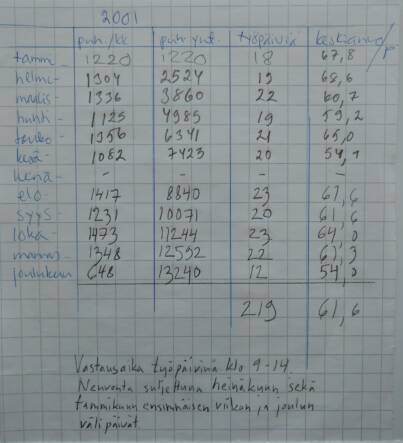 2001
puh./kk puh. yht. työpäiviä keskiarvo/p
tammi- 1220 1220 18 67,8
helmi- 1304 2524 19 68,6
maalis- 1336 3860 22 60,7
huhti- 1125 4985 19 59,2
touko- 1356 6341 21 65,0
kesä- 1082 7423 20 54,1
heinä- - - - -
elo- 1417 8840 23 61,6
syys- 1231 10071 20 61,6
loka- 1473 11244 23 64,0
marras- 1348 12592 22 61,3
joulukuu 648 13240 12 54,0
219 61,6
Vastausaika työpäivinä klo 9-14
Neuvonta suljettuna heinäkuun sekä
tammikuun ensimmäisen viikon ja joulun
välipäivät